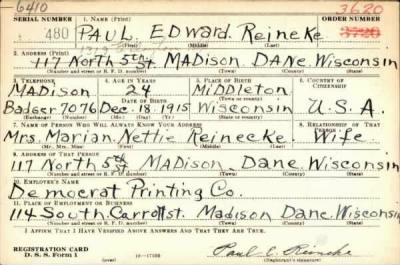 6410
3620
SERIAL NUMBER 1. NAME (Print) ORDER NUMBER
480 PAUL Edward Reineke 3720
(First) (Middle) (Last)
2. ADDRESS (Print)
117 North 5th St MADison DANe, Wisconsin
(Number and street or R. F. D. number) (Town) (County) (State)
3. TELEPHONE 4. AGE IN YEARS 5. PLACE OF BIRTH 6. COUNTRY OF CITIZENSHIP
MADison 24 MiDDleton
(Town or county)
Badger 7076 Dec. 18, 1915 Wisconsin U.S.A.
(Exchange) (Number) (Mo.) (Day) (Yr.) (State or country)
7. NAME OF PERSON WHO WILL ALWAYS KNOW YOUR ADDRESS 8. RELATIONSHIP OF THAT PERSON
Mrs. Marian Nettie Reinecke Wife
(Mr., Mrs., Miss) (First) (Middle) (Last)
9. ADDRESS OF THAT PERSON
117 North 5th St MADison, Dane, Wisconsin
(Number and street or R. F. D. number) (Town) (County) (State)
10. EMPLOYER'S NAME
Democrat Printing Co.
11. PLACE OF EMPLOYMENT OR BUSINESS
114 South Carroll st. Madison Dane, Wisconsin
(Number and street or R. F. D. number) (Town) (County) (State)
I AFFIRM THAT I HAVE VERIFIED ABOVE ANSWERS AND THAT THEY ARE TRUE.
REGISTRATION CARD
D. S. S. Form 1 16-17105 Paul E Reineke
(Registrant's signature)